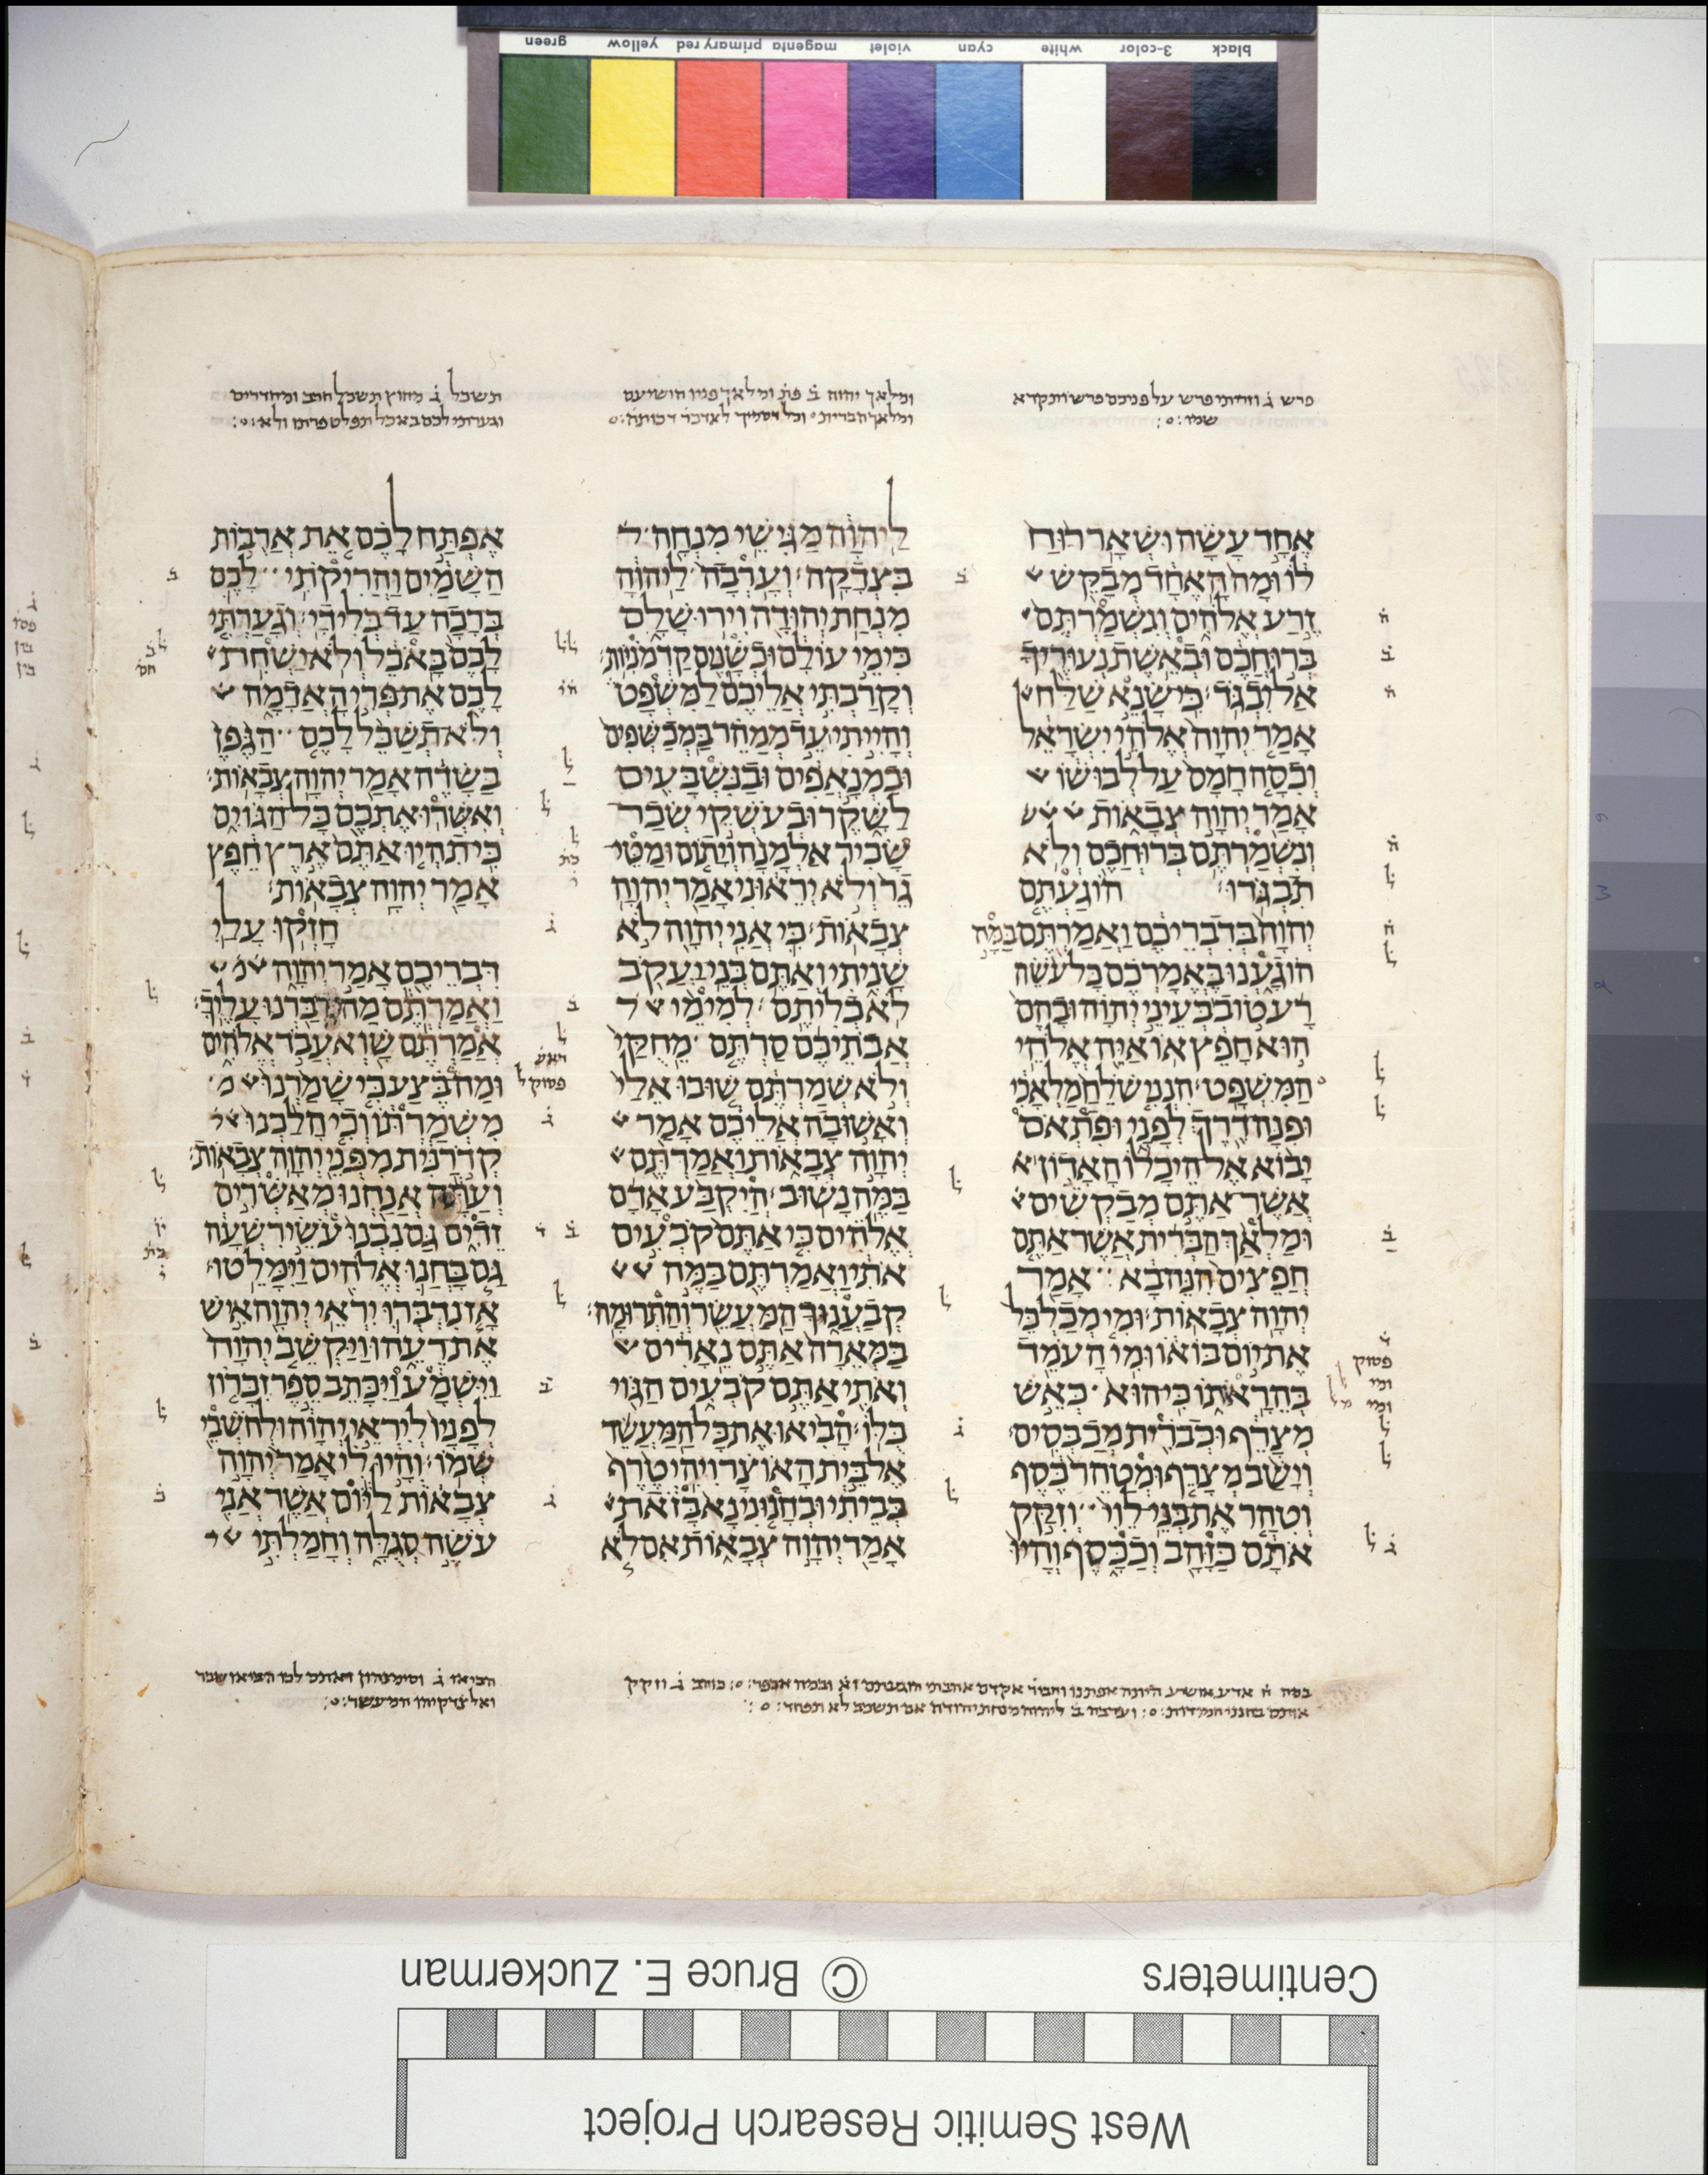 black 3-color white cyan violet magenta primary red yellow green
פרש
שמו
ומלאך יהוה ב פת ומלאך פניו הושיעם
תשכל ג מחוץ תשכל חרב ומחדרים
אֶחָד עָשָׂה וּשְׁאָר רוּחַ
לוֹ וּמָה הָאֶחָד מְבַקֵּשׁ
זֶרַע אֱלֹהִים וְנִשְׁמַרְתֶּם
בְּרוּחֲכֶם וּבְאֵשֶׁת נְעוּרֶיךָ
אַל יִבְגֹּד׃ כִּי שָׂנֵא שַׁלַּח
אָמַר יְהוָה אֱלֹהֵי יִשְׂרָאֵל
וְכִסָּה חָמָס עַל לְבוּשׁוֹ
אָמַר יְהוָה צְבָאוֹת
וְנִשְׁמַרְתֶּם בְּרוּחֲכֶם וְלֹא
תִבְגֹּדוּ׃ הוֹגַעְתֶּם
יְהוָה בְּדִבְרֵיכֶם וַאֲמַרְתֶּם בַּמָּה
הוֹגָעְנוּ בֶּאֱמָרְכֶם כָּל עֹשֵׂה
רָע טוֹב בְּעֵינֵי יְהוָה וּבָהֶם
הוּא חָפֵץ אוֹ אַיֵּה אֱלֹהֵי
הַמִּשְׁפָּט׃ הִנְנִי שֹׁלֵחַ מַלְאָכִי
וּפִנָּה דֶרֶךְ לְפָנָי וּפִתְאֹם
יָבוֹא אֶל הֵיכָלוֹ הָאָדוֹן
אֲשֶׁר אַתֶּם מְבַקְשִׁים
וּמַלְאַךְ הַבְּרִית אֲשֶׁר אַתֶּם
חֲפֵצִים הִנֵּה בָא אָמַר
יְהוָה צְבָאוֹת׃ וּמִי מְכַלְכֵּל
אֶת יוֹם בּוֹאוֹ וּמִי הָעֹמֵד
בְּהֵרָאוֹתוֹ כִּי הוּא כְּאֵשׁ
מְצָרֵף וּכְבֹרִית מְכַבְּסִים׃
וְיָשַׁב מְצָרֵף וּמְטַהֵר כֶּסֶף
וְטִהַר אֶת בְּנֵי לֵוִי וְזִקַּק
אֹתָם כַּזָּהָב וְכַכָּסֶף וְהָיוּ
לַיהוָה מַגִּישֵׁי מִנְחָה
בִּצְדָקָה׃ וְעָרְבָה לַיהוָה
מִנְחַת יְהוּדָה וִירוּשָׁלָ‍ִם
כִּימֵי עוֹלָם וּכְשָׁנִים קַדְמֹנִיּוֹת׃
וְקָרַבְתִּי אֲלֵיכֶם לַמִּשְׁפָּט
וְהָיִיתִי עֵד מְמַהֵר בַּמְכַשְּׁפִים
וּבַמְנָאֲפִים וּבַנִּשְׁבָּעִים
לַשָּׁקֶר וּבְעֹשְׁקֵי שְׂכַר
שָׂכִיר אַלְמָנָה וְיָתוֹם וּמַטֵּי
גֵר וְלֹא יְרֵאוּנִי אָמַר יְהוָה
צְבָאוֹת׃ כִּי אֲנִי יְהוָה לֹא
שָׁנִיתִי וְאַתֶּם בְּנֵי יַעֲקֹב
לֹא כְלִיתֶם׃ לְמִימֵי
אֲבֹתֵיכֶם סַרְתֶּם מֵחֻקַּי
וְלֹא שְׁמַרְתֶּם שׁוּבוּ אֵלַי
וְאָשׁוּבָה אֲלֵיכֶם אָמַר
יְהוָה צְבָאוֹת וַאֲמַרְתֶּם
בַּמֶּה נָשׁוּב׃ הֲיִקְבַּע אָדָם
אֱלֹהִים כִּי אַתֶּם קֹבְעִים
אֹתִי וַאֲמַרְתֶּם בַּמֶּה
קְבַעֲנוּךָ הַמַּעֲשֵׂר וְהַתְּרוּמָה׃
בַּמְּאֵרָה אַתֶּם נֵאָרִים
וְאֹתִי אַתֶּם קֹבְעִים הַגּוֹי
כֻּלּוֹ׃ הָבִיאוּ אֶת כָּל הַמַּעֲשֵׂר
אֶל בֵּית הָאוֹצָר וִיהִי טֶרֶף
בְּבֵיתִי וּבְחָנוּנִי נָא בָּזֹאת
אָמַר יְהוָה צְבָאוֹת אִם לֹא
אֶפְתַּח לָכֶם אֵת אֲרֻבּוֹת
הַשָּׁמַיִם וַהֲרִיקֹתִי לָכֶם
בְּרָכָה עַד בְּלִי דָי׃ וְגָעַרְתִּי
לָכֶם בָּאֹכֵל וְלֹא יַשְׁחִת
לָכֶם אֶת פְּרִי הָאֲדָמָה
וְלֹא תְשַׁכֵּל לָכֶם הַגֶּפֶן
בַּשָּׂדֶה אָמַר יְהוָה צְבָאוֹת׃
וְאִשְּׁרוּ אֶתְכֶם כָּל הַגּוֹיִם
כִּי תִהְיוּ אַתֶּם אֶרֶץ חֵפֶץ
אָמַר יְהוָה צְבָאוֹת׃
חָזְקוּ עָלַי
דִּבְרֵיכֶם אָמַר יְהוָה
וַאֲמַרְתֶּם מַה נִּדְבַּרְנוּ עָלֶיךָ׃
אֲמַרְתֶּם שָׁוְא עֲבֹד אֱלֹהִים
וּמַה בֶּצַע כִּי שָׁמַרְנוּ
מִשְׁמַרְתּוֹ וְכִי הָלַכְנוּ
קְדֹרַנִּית מִפְּנֵי יְהוָה צְבָאוֹת׃
וְעַתָּה אֲנַחְנוּ מְאַשְּׁרִים
זֵדִים גַּם נִבְנוּ עֹשֵׂי רִשְׁעָה
גַּם בָּחֲנוּ אֱלֹהִים וַיִּמָּלֵטוּ׃
אָז נִדְבְּרוּ יִרְאֵי יְהוָה אִישׁ
אֶת רֵעֵהוּ וַיַּקְשֵׁב יְהוָה
וַיִּשְׁמָע וַיִּכָּתֵב סֵפֶר זִכָּרוֹן
לְפָנָיו לְיִרְאֵי יְהוָה וּלְחֹשְׁבֵי
שְׁמוֹ׃ וְהָיוּ לִי אָמַר יְהוָה
צְבָאוֹת לַיּוֹם אֲשֶׁר אֲנִי
עֹשֶׂה סְגֻלָּה וְחָמַלְתִּי
Centimeters © Bruce E. Zuckerman
West Semitic Research Project